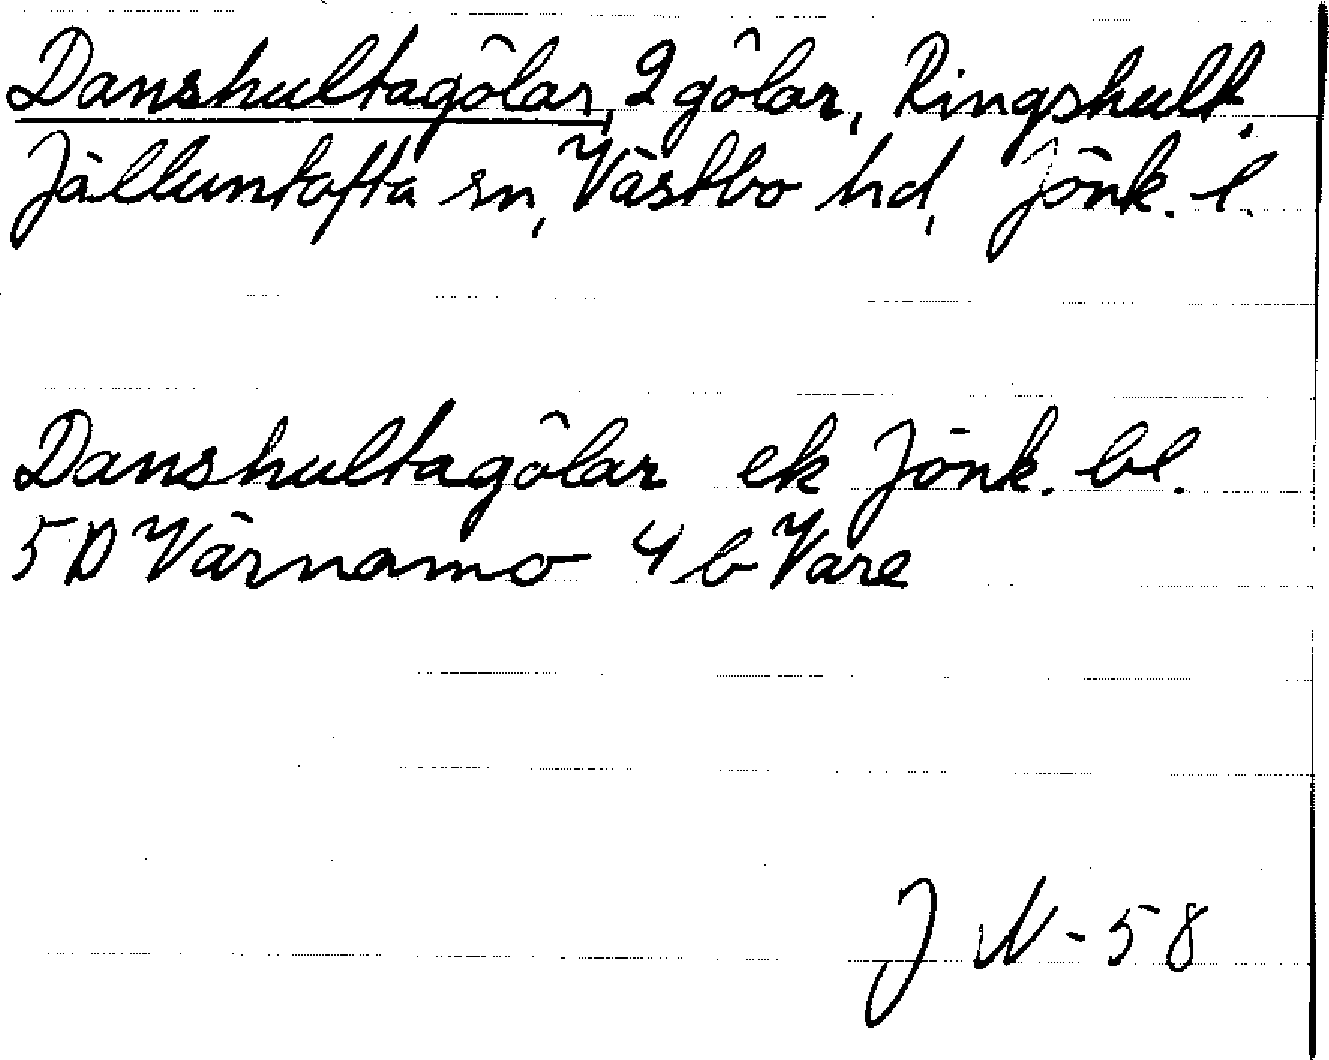 Danshultagölar, 2 gölar, Ringshult,
Jälluntofta sn, Västbo hd, Jönk. l.
Danshultagölar ek Jönk. bl.
5D Värnamo 4 b Vare
J N-58